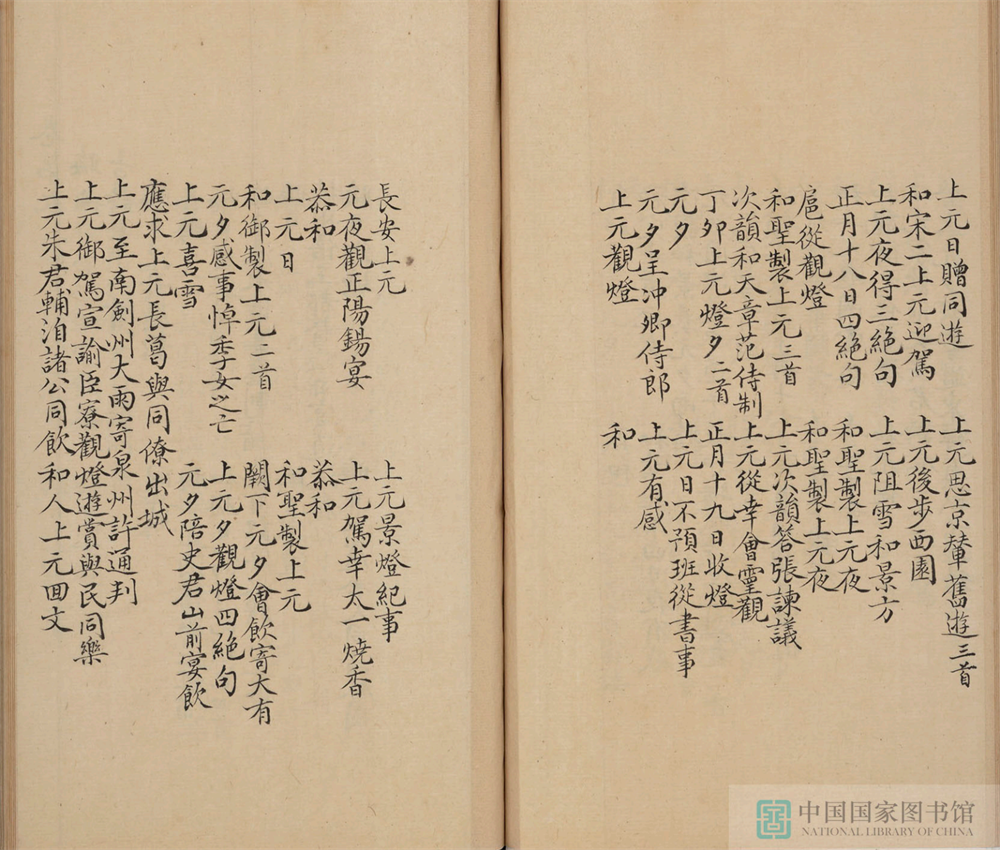 上元日贈同遊　上元思京輦舊遊三首
和宋二上元迎駕　上元後步西園
上元夜得三絕句　上元阻雪和景方
正月十八日四絕句　和聖製上元夜
扈從觀燈　和聖製上元夜
和聖製上元三首　上元次韻答張諫議
次韻和天章范侍制　上元從幸會靈觀
丁卯上元燈夕二首　正月十九日收燈
元夕　上元日不預班從書事
元夕呈冲卿侍郎　上元有感
上元觀燈　和
長安上元　上元景燈紀事
元夜觀正陽錫宴　上元駕幸太一燒香
恭和　恭和
上元日　和聖製上元
和御製上元二首　闕下元夕會飲寄大有
元夕感事悼季女之亡　上元夕觀燈四絕句
上元喜雪　元夕陪史君山前宴飲
應求上元長葛與同僚出城
上元至南劍州大雨寄泉州許通判
上元御駕宣諭臣寮觀燈遊賞與民同樂
上元朱君輔洎諸公同飲　和人上元回文
中国国家图书馆
NATIONAL LIBRARY OF CHINA